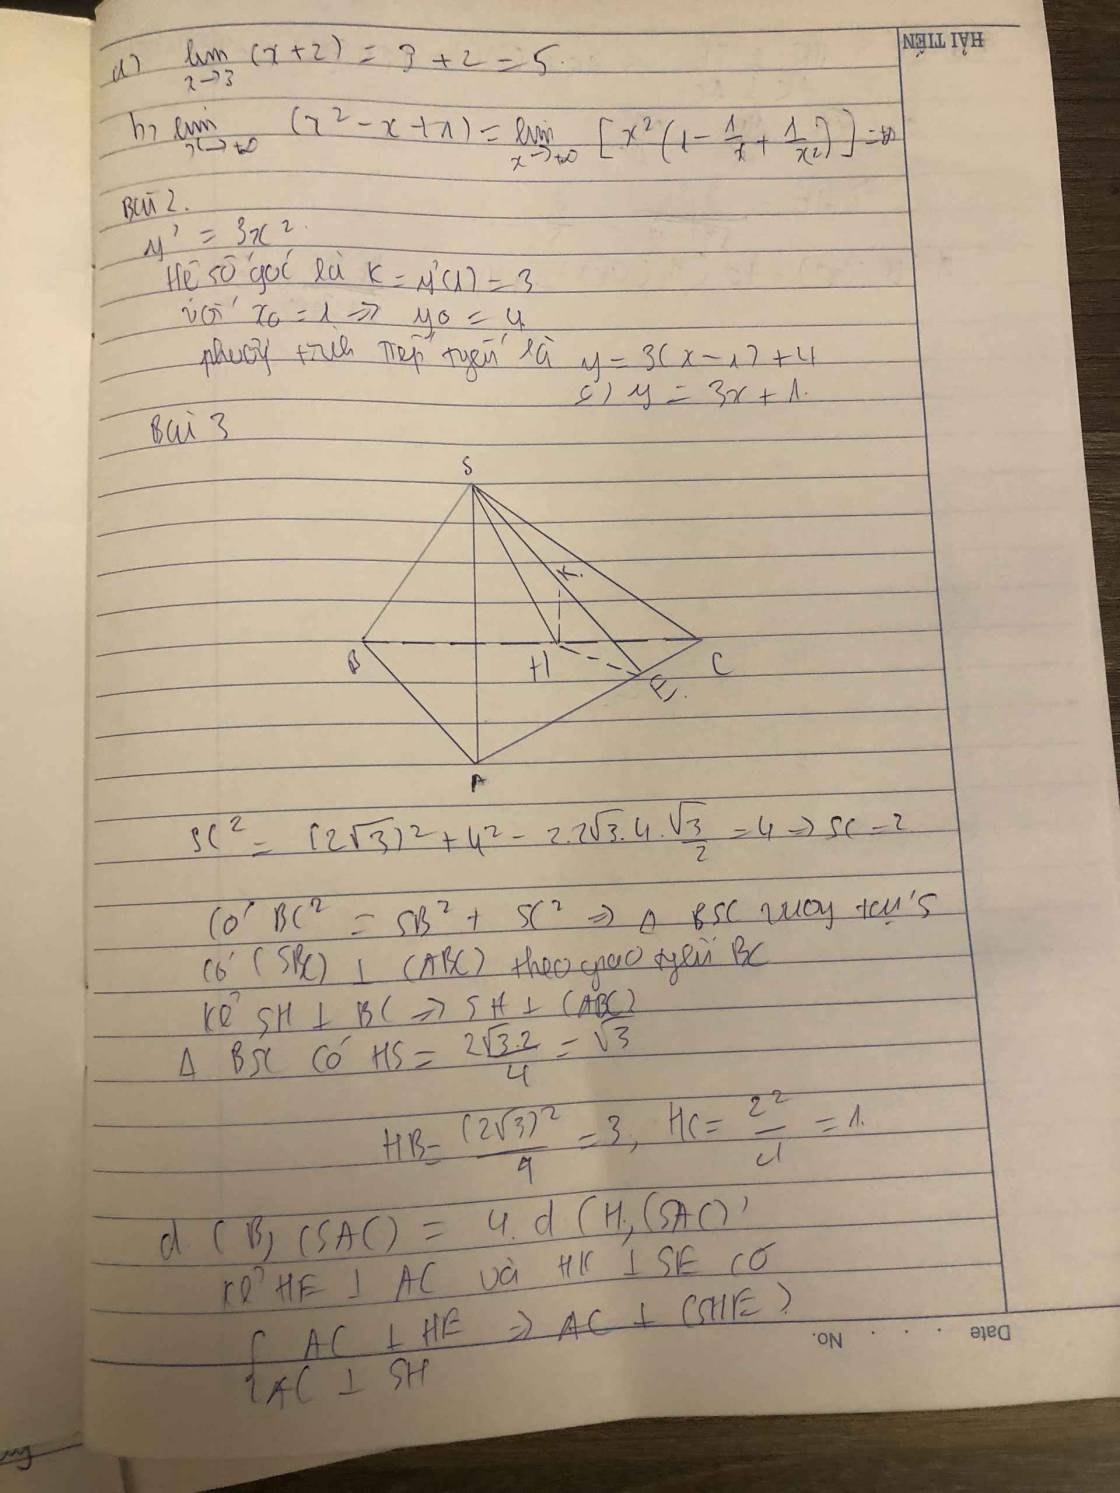 HẢI TIẾN
a) lim x→3 (x+2) = 3+2 = 5.
b, lim x→+∞ (x² - x + 1) = lim x→+∞ [x²(1 - 1/x + 1/x²)] = +∞
Bài 2.
y' = 3x².
Hệ số góc là K = y'(1) = 3
với x₀ = 1 ⇒ y₀ = 4
phương trình tiếp tuyến là y = 3(x-1)+4
⇔ y = 3x + 1.
Bài 3
S
K.
B H C
E.
A
SC² = (2√3)² + 4² - 2.2√3.4.√3/2 = 4 ⇒ SC = 2
Có BC² = SB² + SC² ⇒ Δ BSC vuông tại S
Có (SBC) ⊥ (ABC) theo giao tuyến BC
Kẻ SH ⊥ BC ⇒ SH ⊥ (ABC)
Δ BSC CÓ HS = 2√3.2/4 = √3
HB = (2√3)²/4 = 3, HC = 2²/4 = 1.
d (B, (SAC) = 4. d (H, (SAC)
Kẻ HE ⊥ AC và HK ⊥ SE có
{ AC ⊥ HE ⇒ AC ⊥ (SHE)
AC ⊥ SH
Date . . . . No.